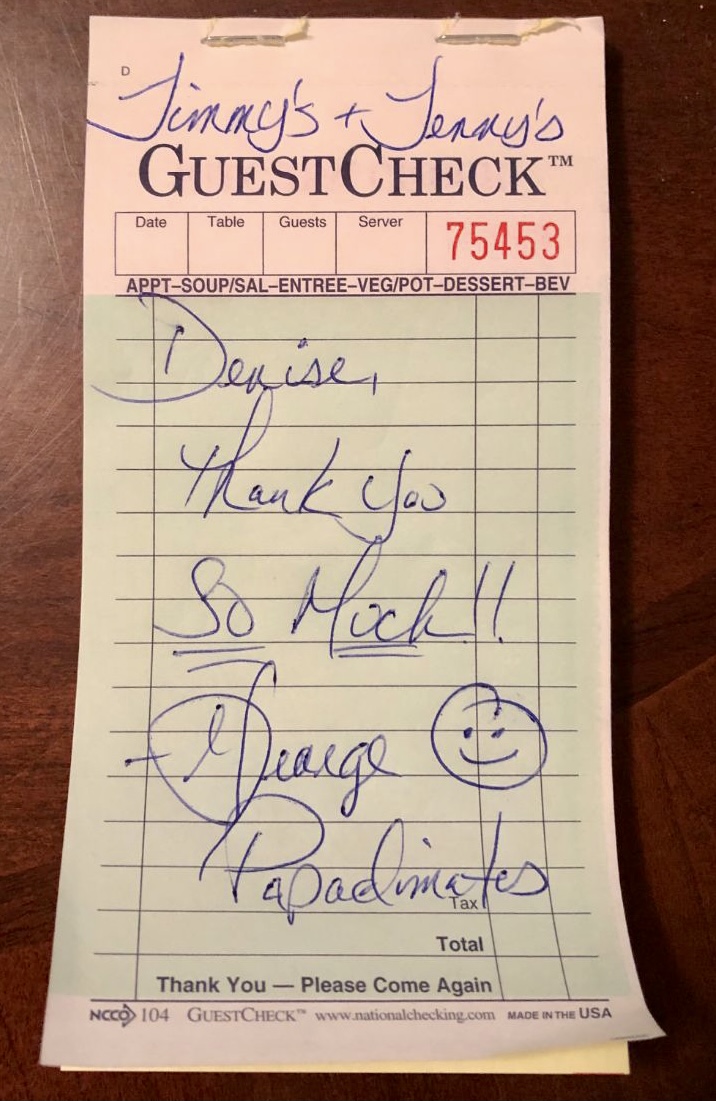 D
Jimmy's + Jenny's
GUESTCHECK™
Date Table Guests Server 75453
APPT–SOUP/SAL–ENTREE–VEG/POT–DESSERT–BEV
Denise,
Thank You
So Much!!
- George
Papadimatos
Tax
Total
Thank You — Please Come Again
NCCO 104 GUESTCHECK™ www.nationalchecking.com MADE IN THE USA